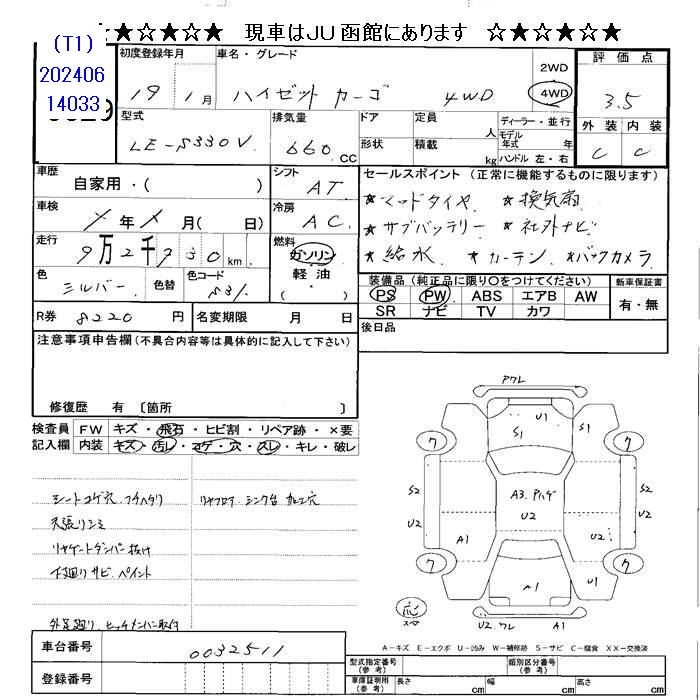 ★☆★☆★☆ 現車はJU函館にあります ☆★☆★☆★
(T1)
202406
14033
初度登録年月
19 1月
車名・グレード
ハイゼット カーゴ 4WD
2WD
4WD
評価点
3.5
外装 内装
C C
型式
LE-S330V
排気量
660 CC
ドア
形状
定員 人
積載 kg
ディーラー・並行
モデル年式 年
ハンドル 左・右
車歴
自家用・( )
シフト
AT
車検
年 月( 日)
冷房
AC
走行
9万2千730km
燃料
ガソリン
軽油
・
色
シルバー
色替
色コード
S31
R券 8220 円
名変期限 月 日
セールスポイント(正常に機能するものに限ります)
★マッドタイヤ ★換気扇
★サブバッテリー ★社外ナビ
★給水 ★カーテン ★バックカメラ
装備品(純正品に限り〇をつけてください)
PS PW ABS エアB AW
SR ナビ TV カワ
新車保証書
有・無
後日品
注意事項申告欄(不具合内容等は具体的に記入して下さい)
修復歴 有〔箇所 〕
検査員記入欄
FW キズ・飛石・ヒビ割・リペア跡・×要
内装 キズ・汚レ・コゲ・穴・スレ・キレ・破レ
シートコゲ穴 フチヘタリ
天張りシミ
リヤゲートダンパー抜け
下廻りサビ ペイント
外装廻り ヒッチメンバー取付
リヤフロア シンク台 加工穴
アワレ
U1
S1
ワ
ワ
S2
U2
A3.アハゲ
U2
A1
S2
U2
U2
A1
ワ
ワ
A1
応
スペ
U2.ワレ
A1
A-キズ E-エクボ U-凹み W-補修跡 S-サビ C-腐食 XX-交換済
車台番号
0032511
登録番号
型式指定番号(参考)
類別区分番号(参考)
車庫証明用(参考)
長さ cm
幅 cm
高さ cm